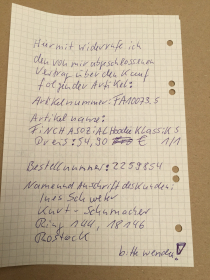 Hiermit widerrufe ich
den von mir abgeschlossenen
Vertrag über den Kauf
folgender Artikel:
Artikelnummer: FA10073.5
Artikelname:
FiNCH ASOZiAL Hodie Klassik S
Preis: 54,90 € 1/1
Bestellnummer: 2259854
Name und Anschrift des Kunden:
Ines Schröter
Kurt-Schumacher
Ring 144, 18146
Rostock
bitte wenden